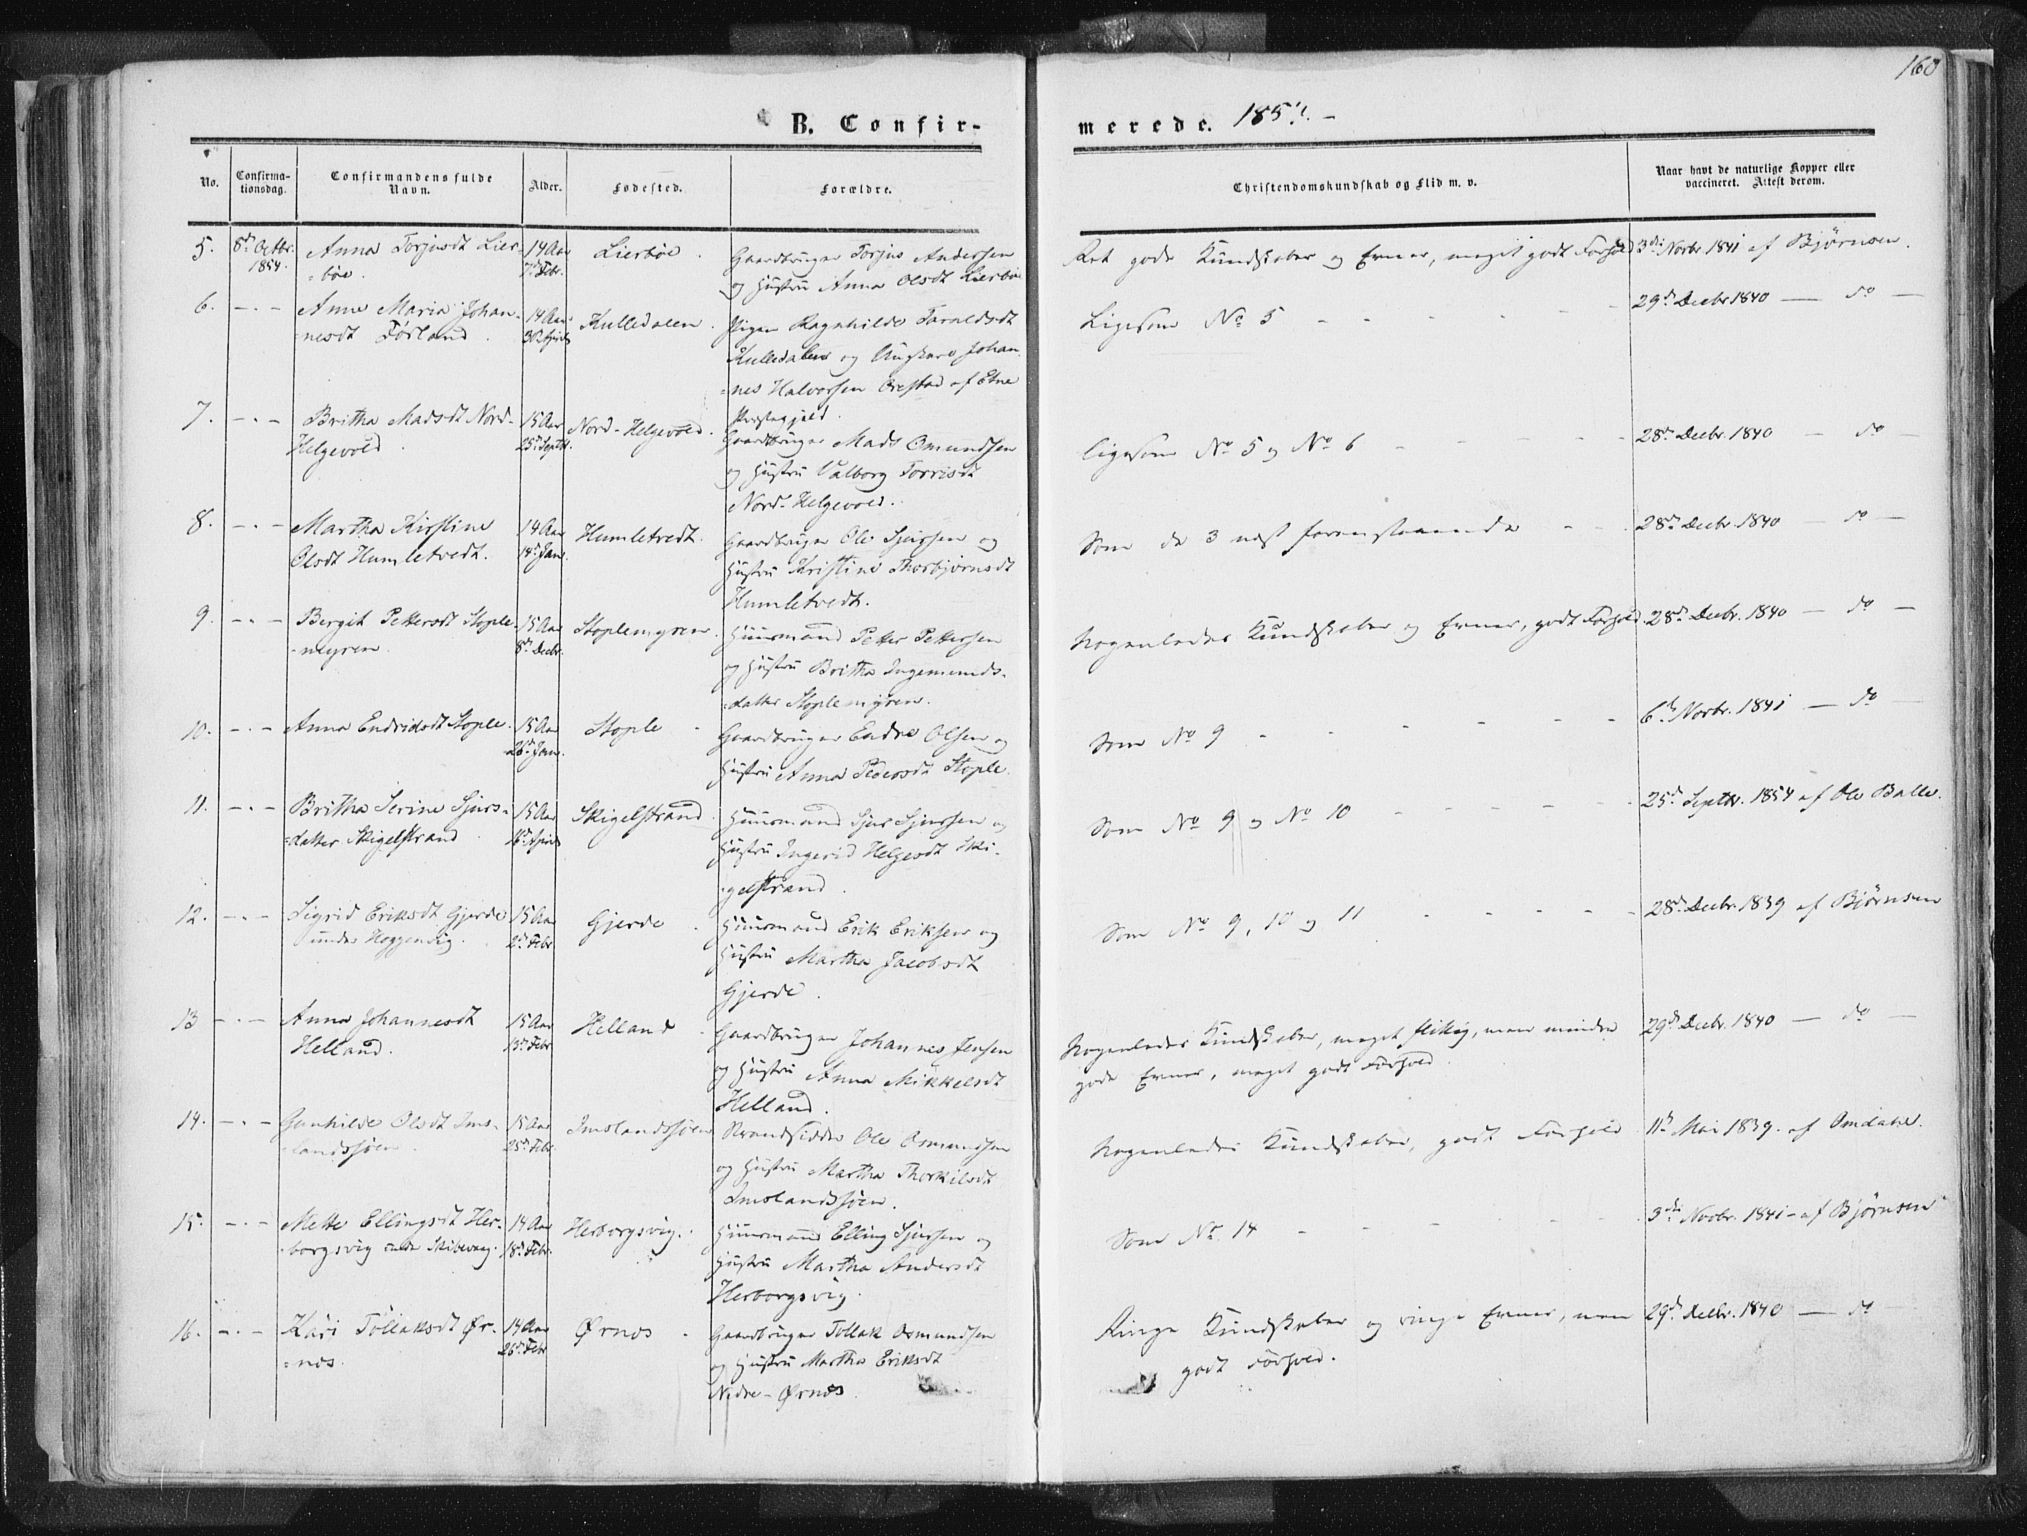 160
B. Confir-
merede. 1854. -
No.
Confirma-
tionsdag.
Confirmandens fulde
Navn.
Alder.
Fødested.
Forældre.
Christendomskundskab og Flid m. v.
Naar havt de naturlige Kopper eller
vaccineret. Attest derom.
5. 8de Octbr. Anna Torjusdt Lier- 14 Aar Lierböe. Gaardbruger Torjus Andersen Ret gode Kundskaber og Evner, meget godt Forhold 3die Novbr 1841 af Bjørnsen.
1854. =böe. 7de Febr. og Hustru Anna Olsdt Lierböe
6. -"- Anne Maria Johan- 14 Aar Kulledalen. Pigen Ragnhilde Taraldsdt Ligesom No 5 - - - - - 29de Decbr 1840 — do —
=nesdt Førland. Kulledalen og Ungkarl Johan-
=nes Halvorsen Orestad af Etne
Præstegjeld.
7. -"- Britha Madsdt Nord- 15 Aar Nord-Helgevold. Gaardbruger Mads Omundsen Ligesom No 5 og No 6 - - - - - 28de Decbr. 1840 — do —
Helgevold. 25de Septbr. og Hustru Valborg Torrisdt
Nord-Helgevold.
8. -"- Martha Kirstine 14 Aar Humletvedt. Gaardbruger Ole Sjursen og Som de 3 næst forenstaaende - - 28de Decbr. 1840 — do —
Olsdt Humletvedt. 14de Jan. Hustru Kristine Thorbjörnsdt
Humletvedt.
9. -"- Bergit Pettersdt Stople- 15 Aar Stoplemyren. Huusmand Petter Pettersen Nogenledes Kundskaber og Evner, godt Forhold. 28de Decbr. 1840 — do —
-myren. 8de Decbr. og Hustru Britha Ingemunds-
=datter Stoplemyren.
10. -"- Anna Endridsdt Stople. 15 Aar Stople - Gaardbruger Endre Olsen og Som No 9 - - - - - - 6te Novbr. 1841 — do —
26de Jan. Hustru Anna Pedersdt Stople.
11. -"- Britha Serine Sjurs- 15 Aar Skigelstrand. Huusmand Sjur Sjursen og Som No 9 og No 10 - - - - - 25de Septbr. 1854 af Ole Balle.
=datter Skigelstrand Hustru Ingerid Helgesdt Ski-
-gelstrand.
12. -"- Sigrid Eriksdt Gjerde 15 Aar Gjerde. Huusmand Erik Eriksen og Som No 9, 10 og 11 - - - - - 28de Decbr. 1839 af Bjørnsen
under Hoggenvig. 2de Febr. Hustru Martha Jacobsdt
Gjerde.
13 -"- Anna Johannesdt 15 Aar Helland. Gaardbruger Johannes Jensen Nogenledes Kundskaber, meget flittig, men mindre 29de Decbr. 1840 — do —
Helland. 13de Febr. og Hustru Anna Mikkelsdt gode Evner, meget godt Forhold.
Helland.
14. -"- Gunhilde Olsdt Ims- 15 Aar Imslandssjöen Strandsidder Ole Osmundsen Nogenledes Kundskaber, godt Forhold 11te Mai 1839. af Omdahl.
-landssjöen. 25de Febr. og Hustru Martha Thorkilsdt
Imslandssjöen.
15. -"- Mette Ellingsdt Her- 14 Aar Herborgsvig. Huusmand Elling Sjursen og Som No. 14 - - - - - 3die Novbr. 1841 - af Bjørnsen
-borgsvig 18de Febr. Hustru Martha Andersdt
Herborgsvig.
16. -"- Kari Tollaksdt Ør- 14 Aar Ørnes. Gaardbruger Tollak Osmundsen Ringe Kundskaber og ringe Evner, men 29de Decbr. 1840 — do
=nes. 26de Febr og Hustru Martha Eriksdt godt Forhold.
Nedre-Ørnes.